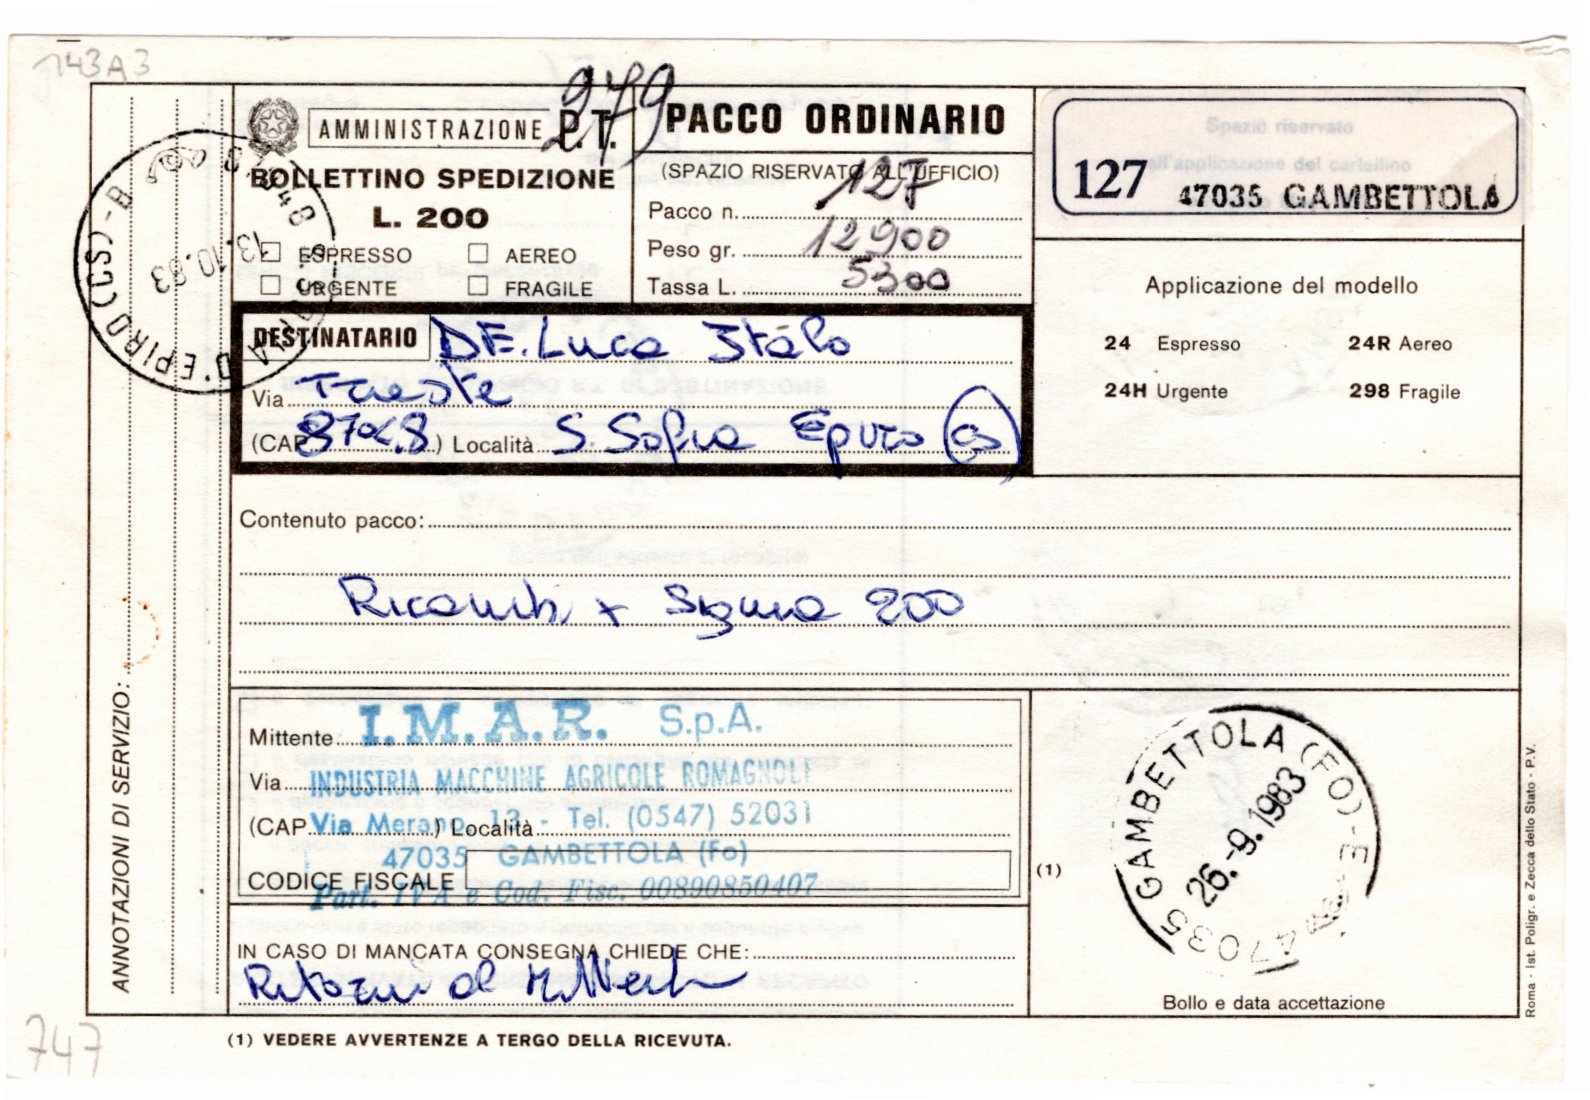 143A3
279
AMMINISTRAZIONE P.T.
BOLLETTINO SPEDIZIONE
L. 200
ESPRESSO AEREO
URGENTE FRAGILE
PACCO ORDINARIO
(SPAZIO RISERVATO ALL'UFFICIO)
Pacco n. 127
Peso gr. 12900
Tassa L. 5300
Spazio riservato
all'applicazione del cartellino
127 47035 GAMBETTOLA
Applicazione del modello
24 Espresso 24R Aereo
24H Urgente 298 Fragile
D'EPIRO (CS) - B
13.10.83
DESTINATARIO DE. Luca Italo
Via Trieste
(CAP 87048) Località S. Sofia Epiro (CS)
Contenuto pacco:
Ricambi x Sigma 200
ANNOTAZIONI DI SERVIZIO:
Mittente I.M.A.R. S.p.A.
Via INDUSTRIA MACCHINE AGRICOLE ROMAGNOLE
(CAP ) Località
Via Merano, 13 - Tel. (0547) 52031
47035 GAMBETTOLA (Fo)
CODICE FISCALE
Part. IVA e Cod. Fisc. 00890850407
IN CASO DI MANCATA CONSEGNA CHIEDE CHE:
Ritorni al Mittente
(1)
47035 GAMBETTOLA (FO) - E
26.-9.1983
Bollo e data accettazione
Roma - Ist. Poligr. e Zecca dello Stato - P.V.
747
(1) VEDERE AVVERTENZE A TERGO DELLA RICEVUTA.